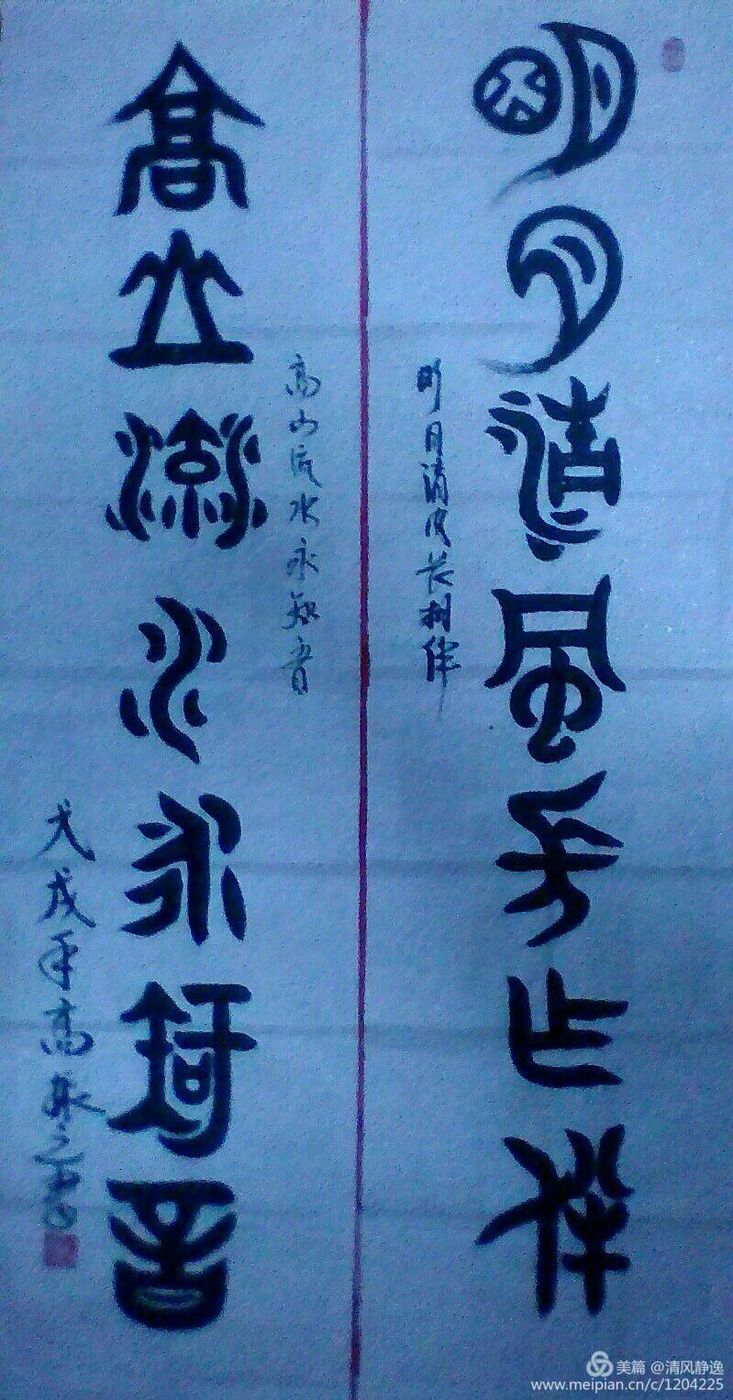 明月清風伴
明月清风长相伴
高山流水永知音
高山流水永知音
戊戌年高
美篇 @清风静逸
www.meipian.cn/c/1204225